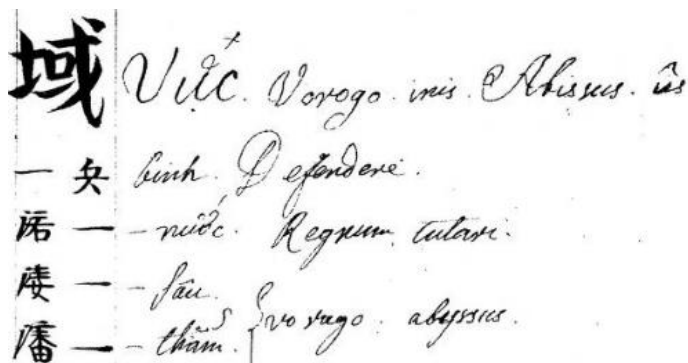 域 + Vực. Vorago. inis. Abissus. ûs
一 兵 binh. Defendere.
渃 一 – nước. Regnum tutari.
溇 一 – sâu.
瀋 一 – thẳm. } vorago. abyssus.